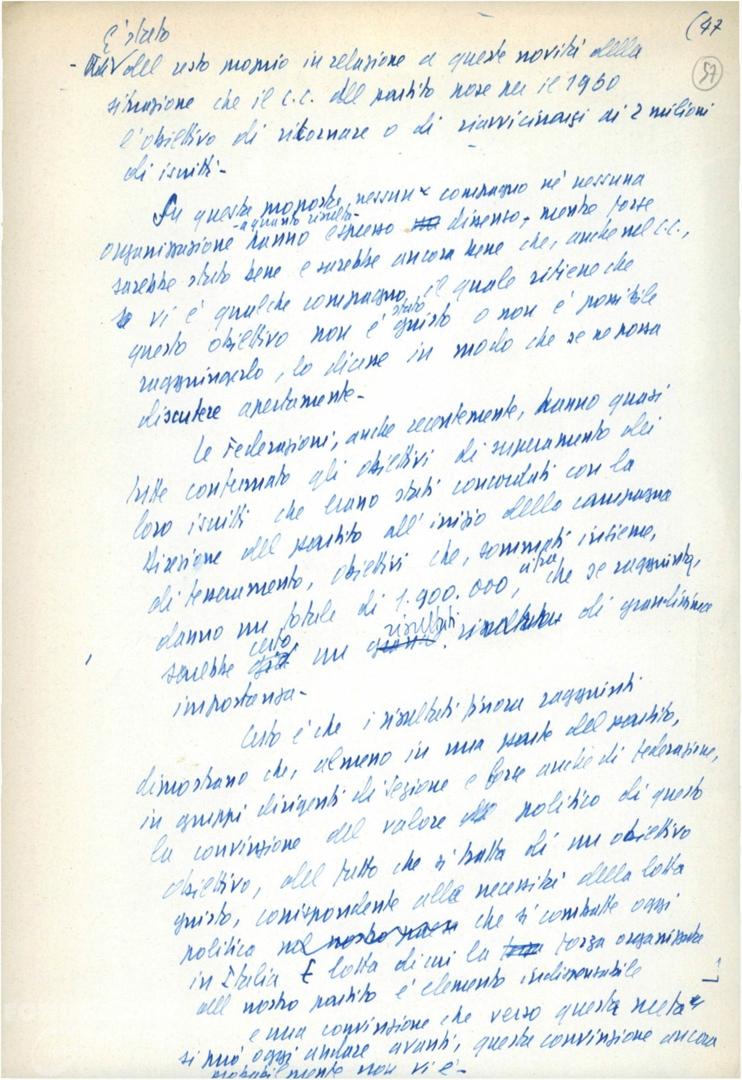 (47
57
È stato
- del resto proprio in relazione a queste novità della
situazione che il C.C. del partito pose per il 1960
l'obiettivo di ritornare o di riavvicinarsi ai 2 milioni
di iscritti -
Su questa proposta, nessun compagno né nessuna
- a quanto risulta -
organizzazione hanno espresso dissenso, mentre forse
sarebbe stato bene e sarebbe ancora bene che, anche nel C.C.,
se vi è qualche compagno, il quale ritiene che
stato
questo obiettivo non è giusto o non è possibile
raggiungerlo, lo dicesse in modo che se ne possa
discutere apertamente -
Le Federazioni, anche recentemente, hanno quasi
tutte confermato gli obiettivi di superamento dei
loro iscritti che erano stati concordati con la
Direzione del partito all'inizio della campagna
di tesseramento, obiettivi che, sommati insieme,
danno un totale di 1.900.000, cifra che se raggiunta,
certo risultati
sarebbe un risultato di grandissima
importanza -
Certo è che i risultati finora raggiunti
dimostrano che, almeno in una parte del partito,
in gruppi dirigenti di sezione e forse anche di federazione,
la convinzione del valore politico di questo
obiettivo, del fatto che si tratta di un obiettivo
giusto, corrispondente alle necessità della lotta
politica nel nostro paese che si combatte oggi
in Italia E lotta di cui la forza organizzata
del nostro partito è elemento indispensabile
e una convinzione che verso questa meta
si può oggi andare avanti, questa convinzione ancora
probabilmente non vi è -